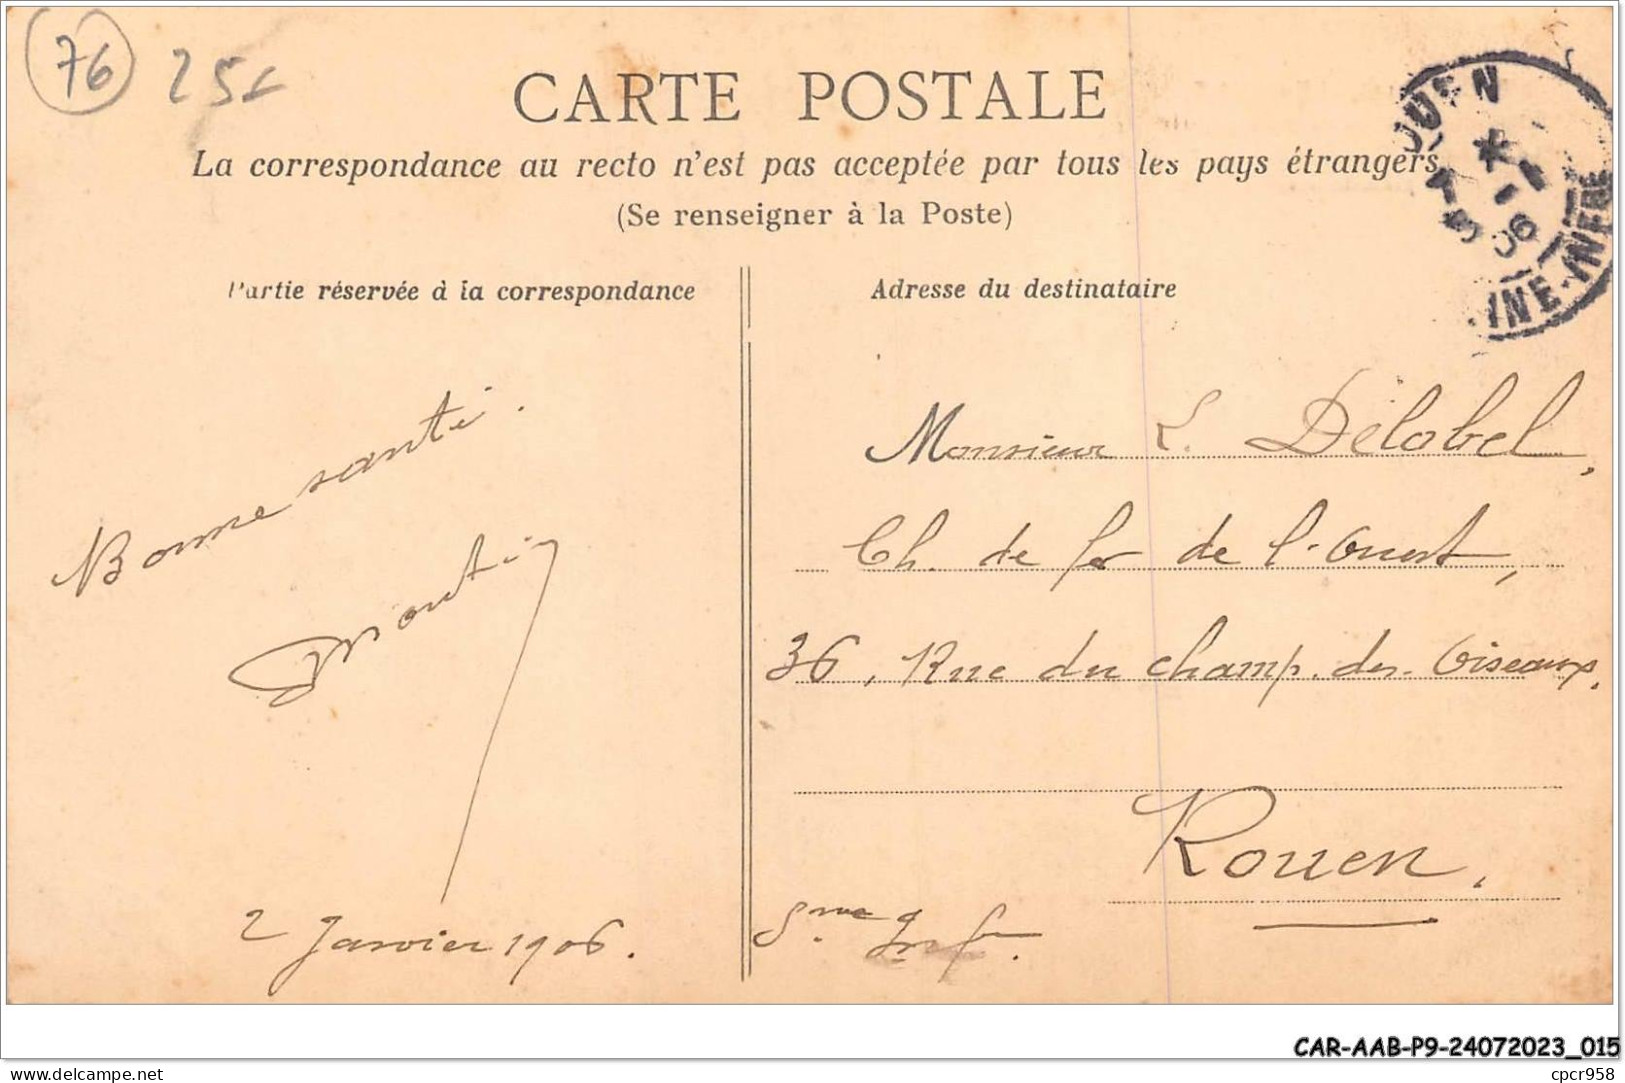 76 25f
CARTE POSTALE
La correspondance au recto n'est pas acceptée par tous les pays étrangers
(Se renseigner à la Poste)
Partie réservée à la correspondance
Adresse du destinataire
ROUEN
INE-INFRE
Bonne santé.
2 Janvier 1906.
Monsieur L. Délobel,
Ch. de fer de l'Ouest,
36, Rue du Champ. des. Oiseaux,
Rouen,
Sme Infre.
CAR-AAB-P9-24072023_015
delcampe.net
cpcr958